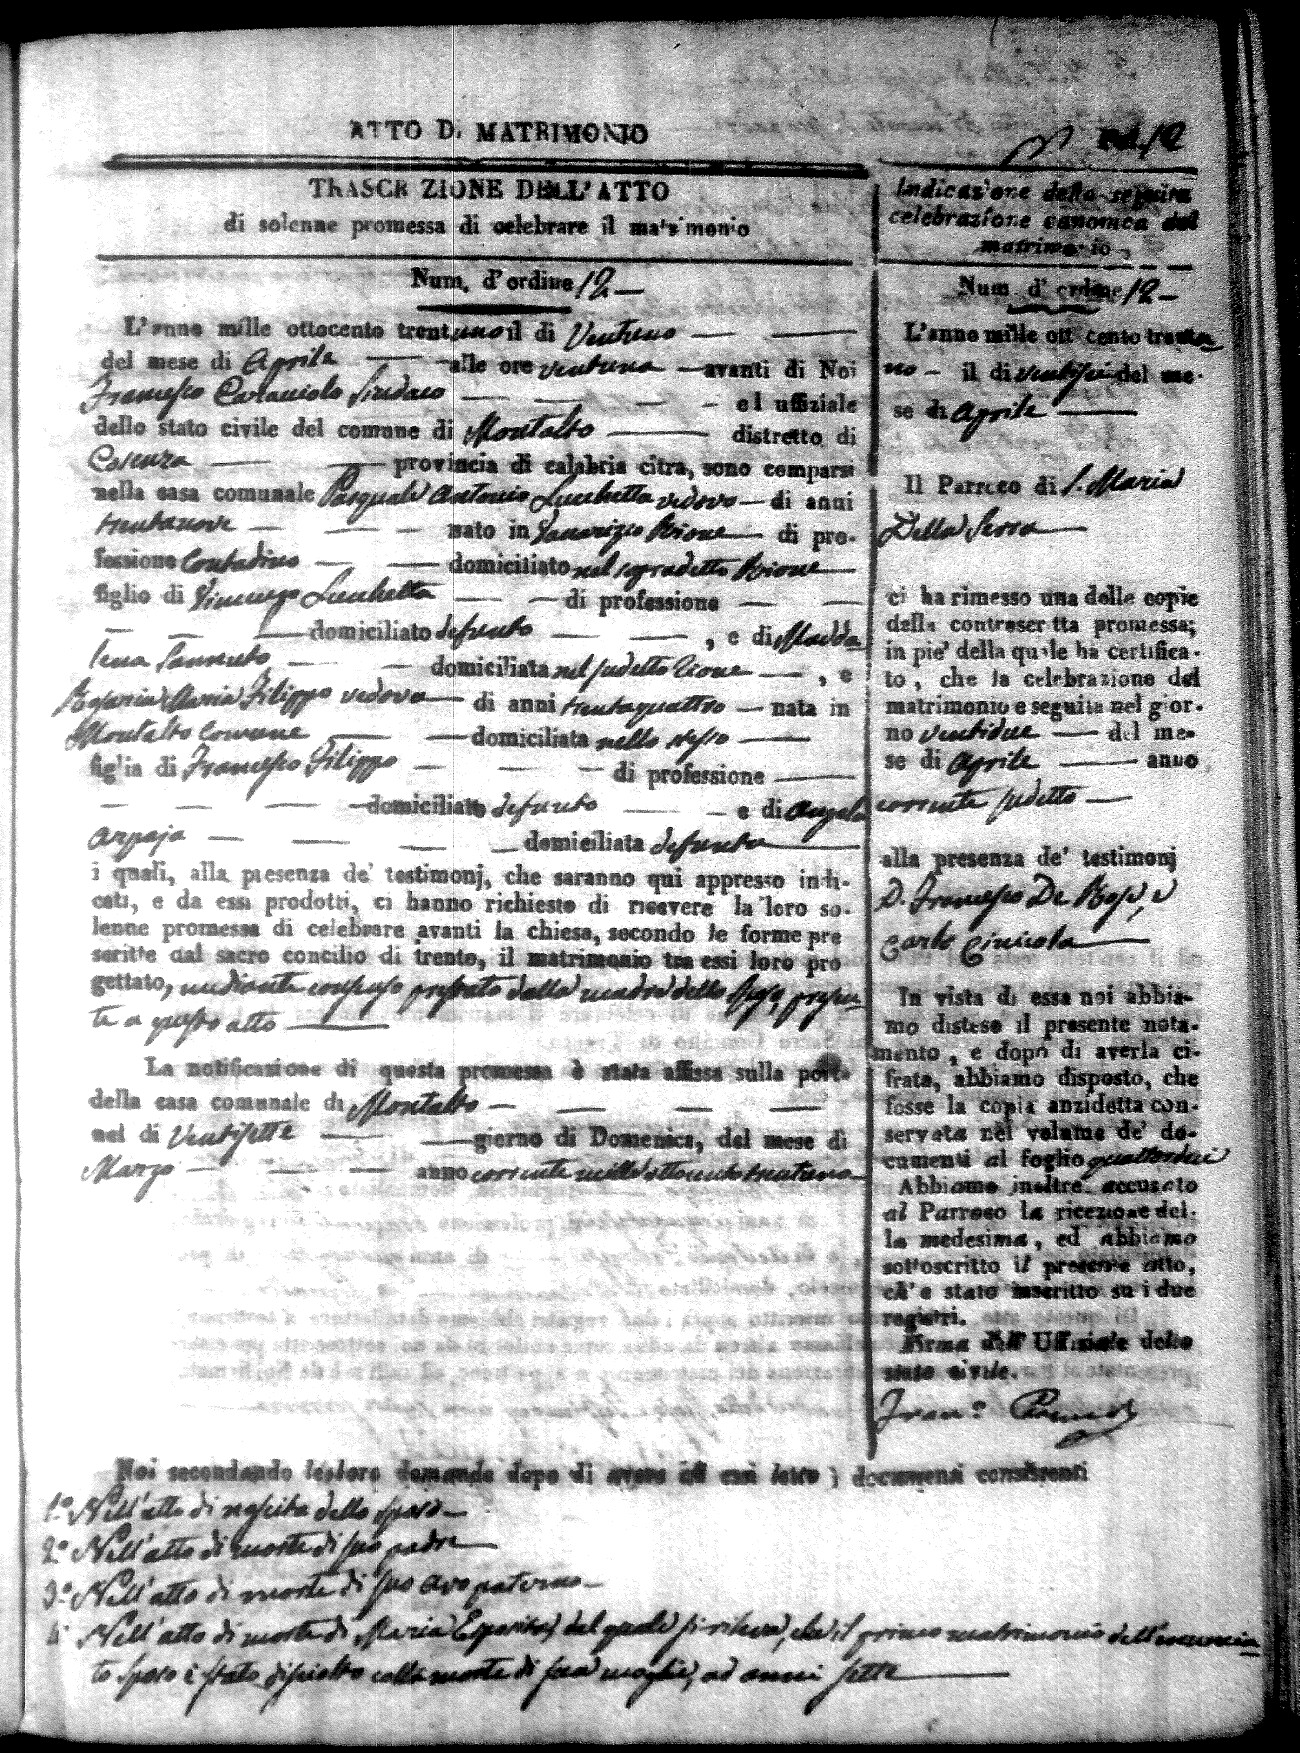 ATTO DI MATRIMONIO
12
TRASCRIZIONE DELL'ATTO
di solenne promessa di celebrare il matrimonio
Num. d'ordine 12
L'anno mille ottocento trentuno il di Ventuno
del mese di Aprile alle ore ventuna avanti di Noi
Francesco Caracciolo Sindaco ed uffiziale
dello stato civile del comune di Montalto distretto di
Cosenza provincia di calabria citra, sono comparsi
nella casa comunale Pasquale Antonio Lucchetta vedovo di anni
trentanove nato in Rione di pro-
fessione Contadino domiciliato nel sopradetto Rione
figlio di Vincenzo Lucchetta di professione
domiciliato defunto , e di Madda
lena domiciliata nel sudetto Rione , e
Maria Filippo vedova di anni trentaquattro nata in
Montalto Comune domiciliata nello stesso
figlia di Francesco Filippo di professione
domiciliato defunto e di Angela
Arpaja domiciliata defunta
i quali, alla presenza de' testimonj, che saranno qui appresso indi-
cati, e da essi prodotti, ci hanno richiesto di ricevere la loro so-
lenne promessa di celebrare avanti la chiesa, secondo le forme pre
scritte dal sacro concilio di trento, il matrimonio tra essi loro pro
gettato, mediante consenso prestato dalla madre dello sposo presen
te a questo atto
La notificazione di questa promessa è stata affissa sulla porta
della casa comunale di Montalto
nel di Ventisette giorno di Domenica, del mese di
Marzo anno corrente mille ottocento trentuno
Indicazione della seguita
celebrazione canonica del
matrimonio
Num d'ordine 12
L'anno mille ottocento trentu
no il di ventisei del me-
se di Aprile
Il Parroco di S. Maria
Della Serra
ci ha rimesso una delle copie
della controscritta promessa;
in pie' della quale ha certifica-
to, che la celebrazione del
matrimonio e seguita nel gior-
no ventidue del me-
se di Aprile anno
corrente sudetto
alla presenza de' testimonj
D. Francesco De e
Carlo
In vista di essa noi abbia-
mo disteso il presente nota-
mento, e dopo di averla ci-
frata, abbiamo disposto, che
fosse la copia anzidetta con-
servata nel volume de' do-
cumenti al foglio quattordici
Abbiamo inoltre accusato
al Parroco la ricezione del-
la medesima, ed abbiamo
sottoscritto il presente atto,
ch' e stato inscritto su i due
registri.
Firma dell' Uffiziale dello
stato civile.
Noi secondando la loro domanda dopo di avere ad essi letto i documenti consistenti
1.º Nell'atto di nascita dello sposo
2.º Nell'atto di morte di suo padre
3.º Nell'atto di morte di suo avo paterno
4.º Nell'atto di morte di Maria Esposito, del quale si rileva, che il primo matrimonio dell'enuncia
to sposo è stato disciolto colla morte di sua moglie, ad anni sette